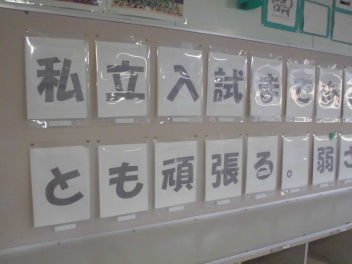 私立入試まであ
とも頑張る。弱さ